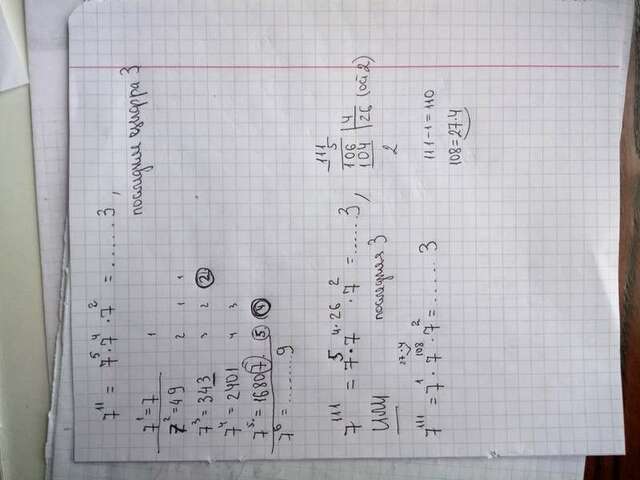 7¹¹ = 7⁵·7⁴·7² = ......3,
последняя цифра 3
7¹=7 1
7²=49 2 1 1
7³=343 3 2 2
7⁴=2401 4 3
7⁵=16807 5 4
7⁶=.......9
7¹¹¹ = 7⁵·7⁴·²⁶·7² =......3,
последняя 3
111
5
106 4
104 26 (ост 2)
2
или
7¹¹¹=7¹·7¹⁰⁸·7²=......3
27·4
111-1=110
108=27·4